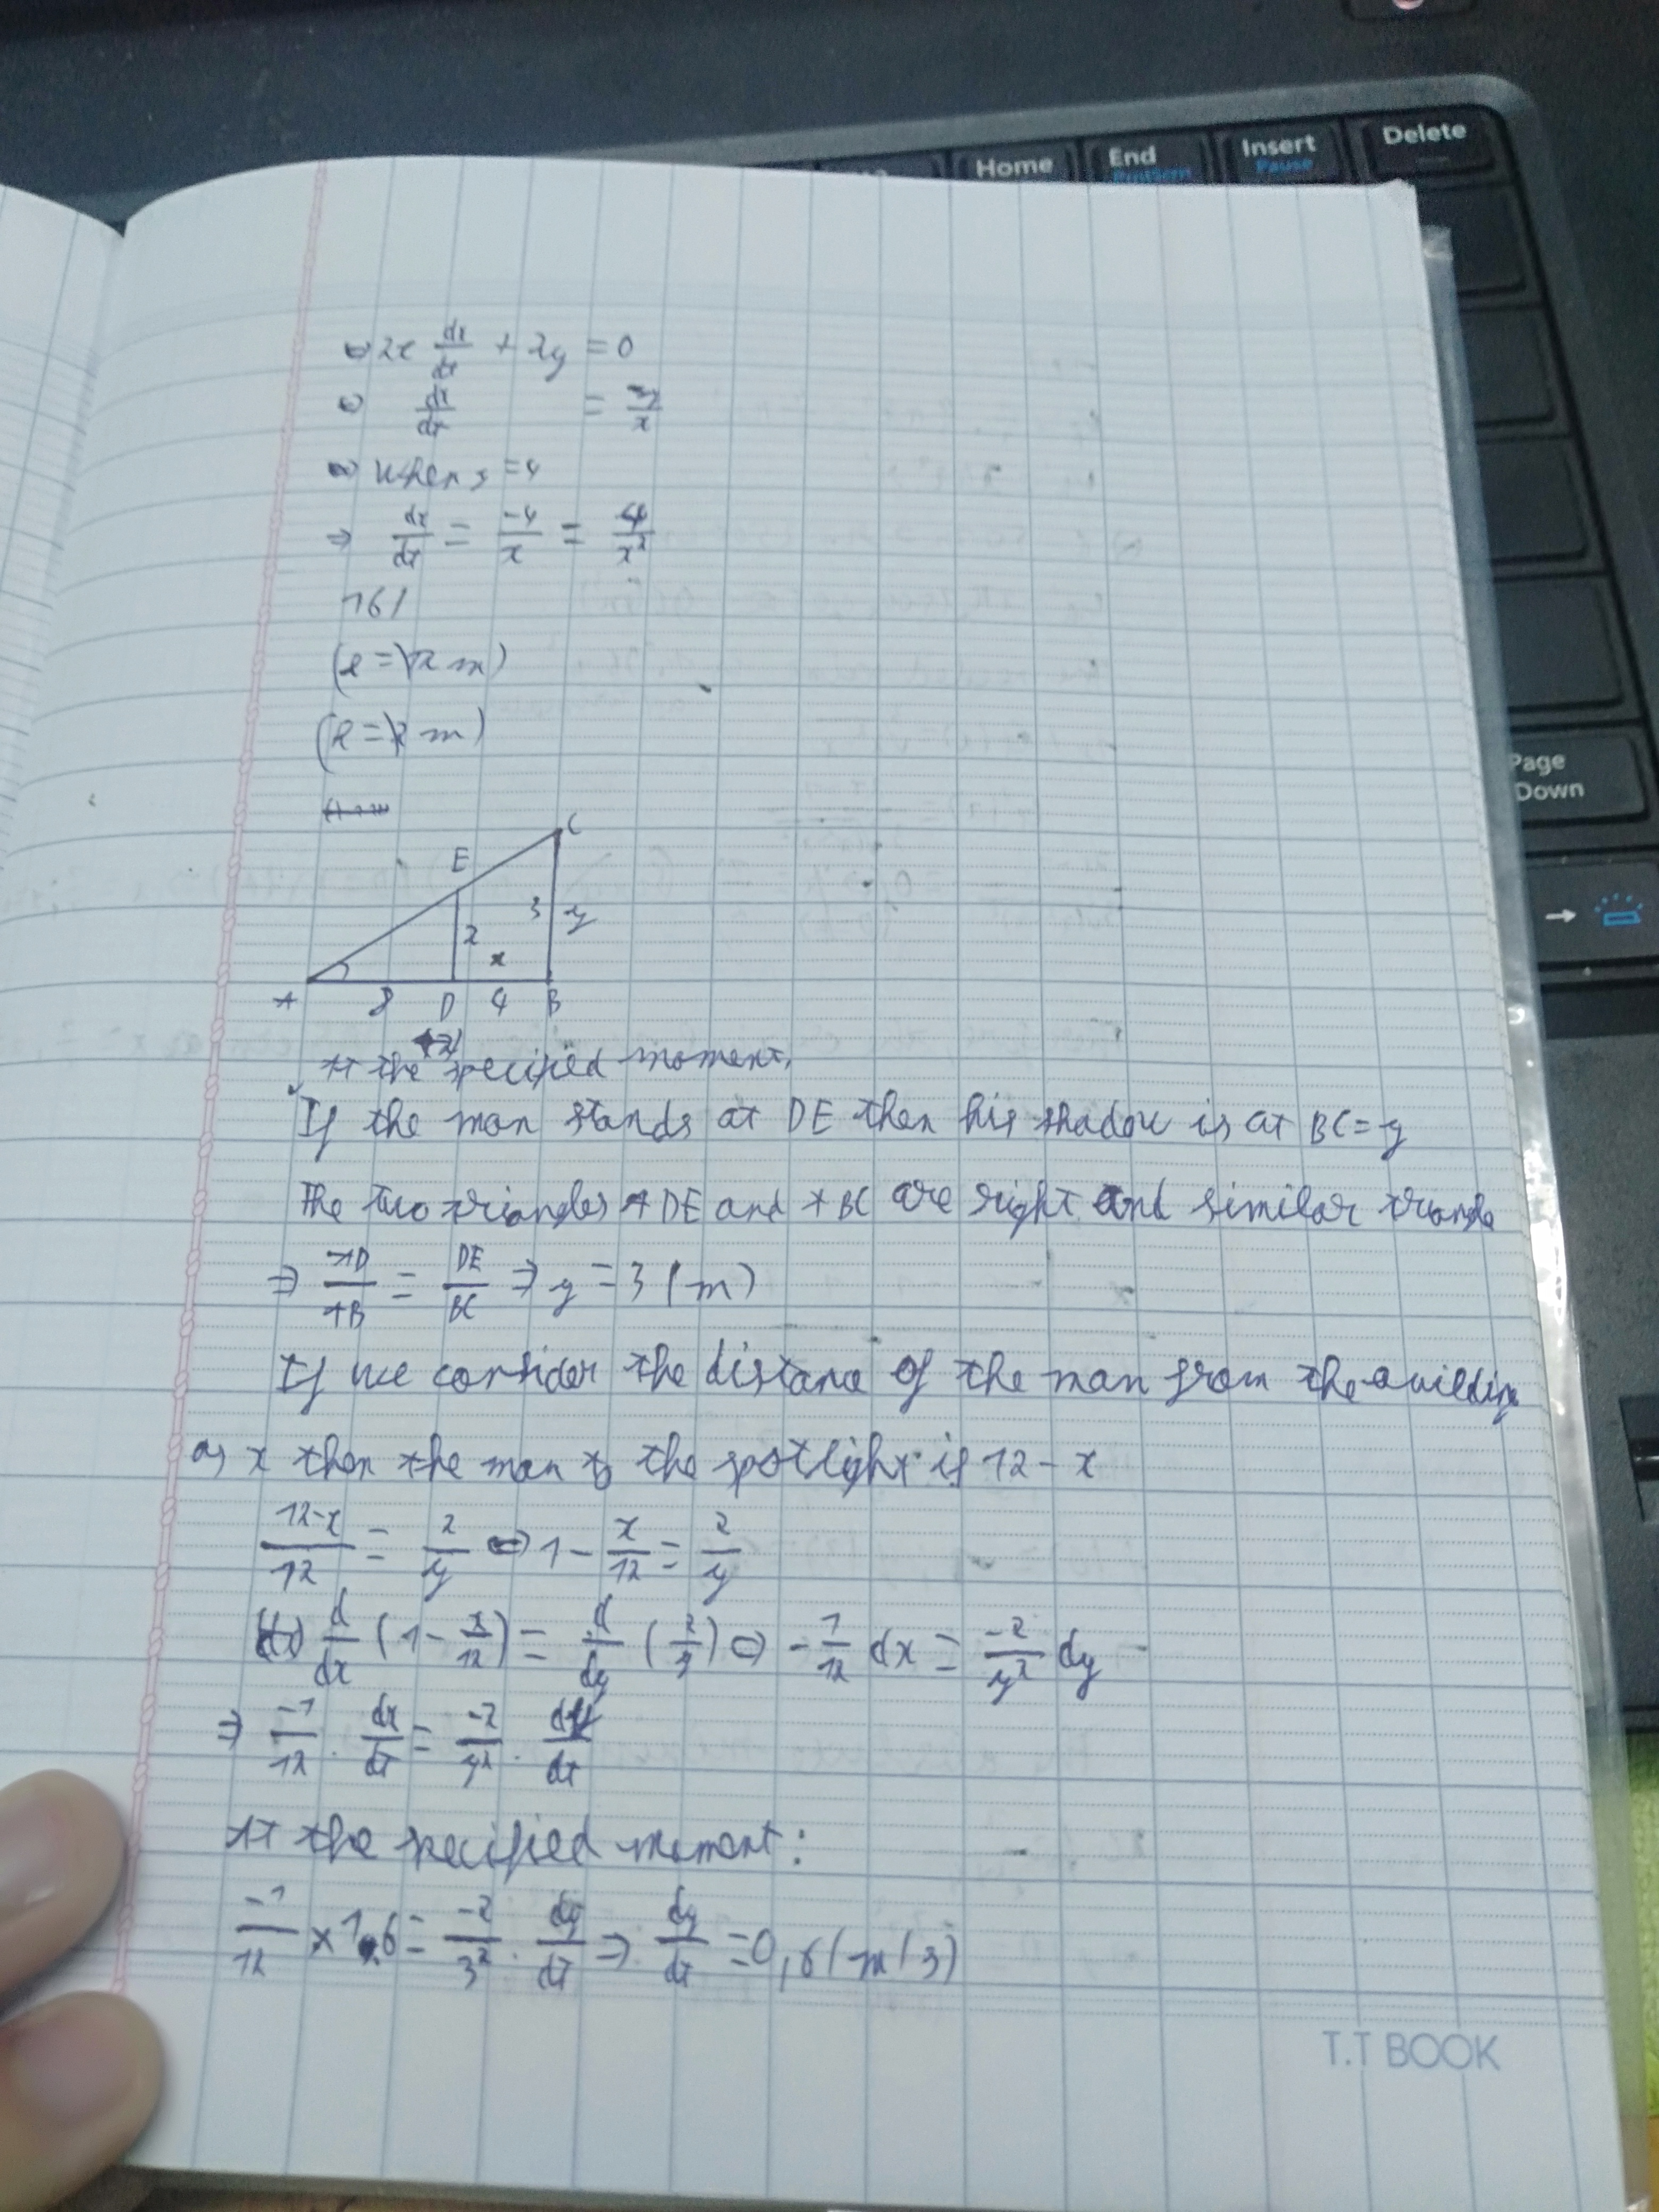 Home
End
PrntScrn
Insert
Pause
Delete
Page
Down
⇔ 2x dx/dt + 2y = 0
⇔ dx/dt = -y/x
⇔ when y = 4
⇒ dx/dt = -4/x =
16/
E
C
3 y
2
x
A 8 D 4 B
At the specified moment,
If the man stands at DE then his shadow is at BC = y
The two triangles ADE and ABC are right and similar triangle
⇒ AD/AB = DE/BC ⇒ y = 3 (m)
If we consider the distance of the man from the building
as x then the man to the spotlight is 12 - x
12-x/12 = 2/y ⇔ 1 - x/12 = 2/y
d/dx (1 - x/12) = d/dy (2/y) ⇔ -1/12 dx = -2/y² dy
⇒ -1/12 . dx/dt = -2/y² . dy/dt
At the specified moment:
-1/12 × 1.6 = -2/3² . dy/dt ⇒ dy/dt = 0,6 (m/s)
T.T BOOK